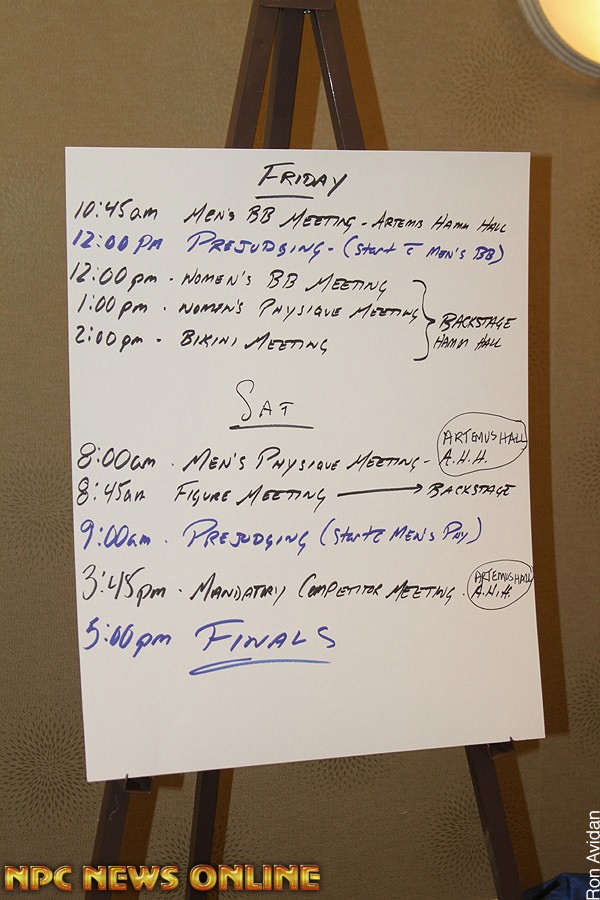 FRIDAY
10:45am MEN'S BB MEETING - ARTEMIS HAMM HALL
12:00 PM PREJUDGING - (START c̄ MEN'S BB)
12:00pm - WOMEN'S BB MEETING
1:00pm - WOMEN'S PHYSIQUE MEETING
2:00pm - BIKINI MEETING
BACKSTAGE
HAMM HALL
SAT
8:00am - MEN'S PHYSIQUE MEETING -
ARTEMUS HALL
A.H.H.
8:45am FIGURE MEETING → BACKSTAGE
9:00am - PREJUDGING (START c̄ MEN'S PHY)
3:45pm - MANDATORY COMPETITOR MEETING -
ARTEMUS HALL
A.H.H.
5:00pm FINALS
NPC NEWS ONLINE
Ron Avidan